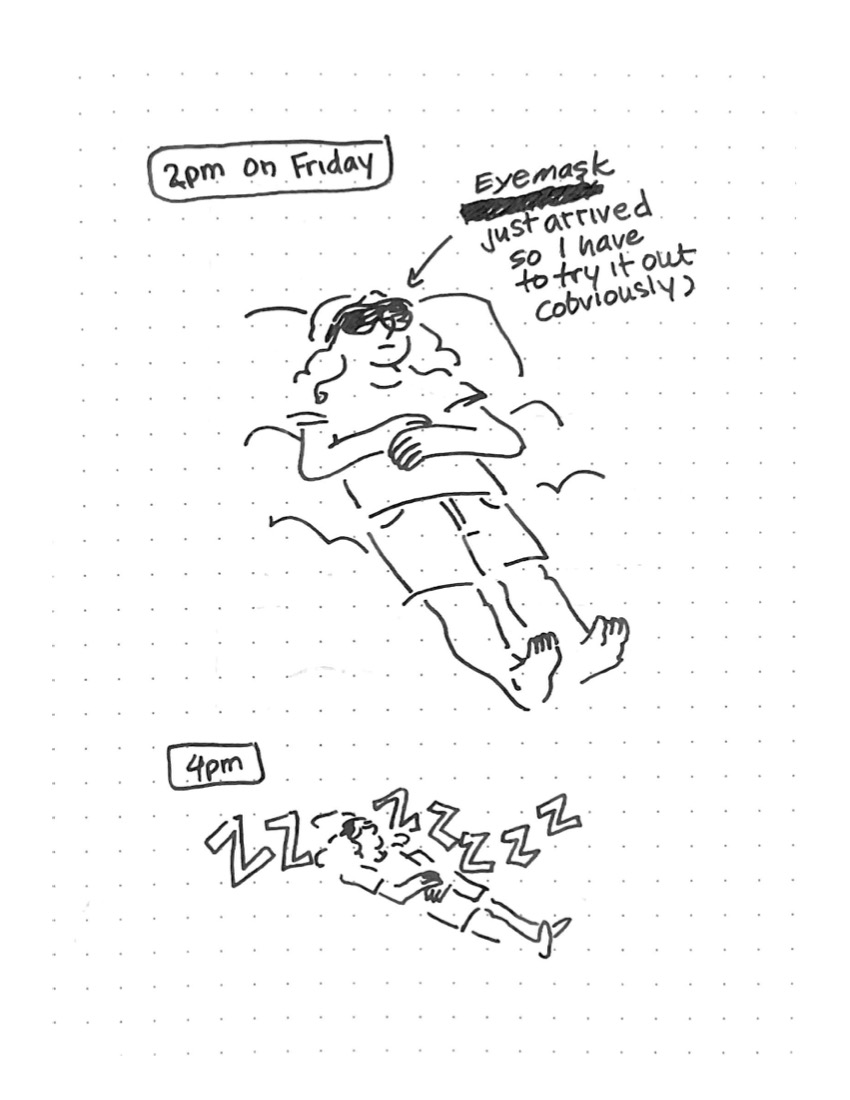 2pm on Friday
Eyemask
just arrived
so I have
to try it out
(obviously)
4pm
ZZZZZZZ